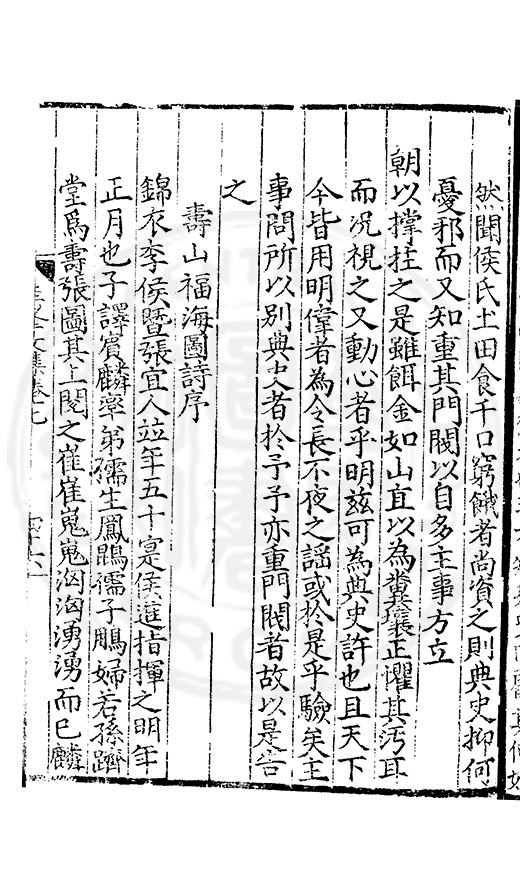 然聞侯氏土田食千口窮餓者尚資之則典史抑何
憂邪而又知重其門閥以自多主事方立
朝以撑拄之是雖餌金如山直以為糞壤正懼其汚耳
而况視之又動心者乎明茲可為典史許也且天下
今皆用明偉者為令長不夜之謡或於是乎驗矣主
事問所以别典史者於予予亦重門閥者故以是告
之
壽山福海圖詩序
錦衣李侯暨張宜人並年五十寔侯進指揮之明年
正月也子譯賓麟率弟孺生鳳鵾孺子鵰婦若孫躋
堂爲壽張圖其上閱之崔崔嵬嵬汹汹湧湧而已麟
文集卷九